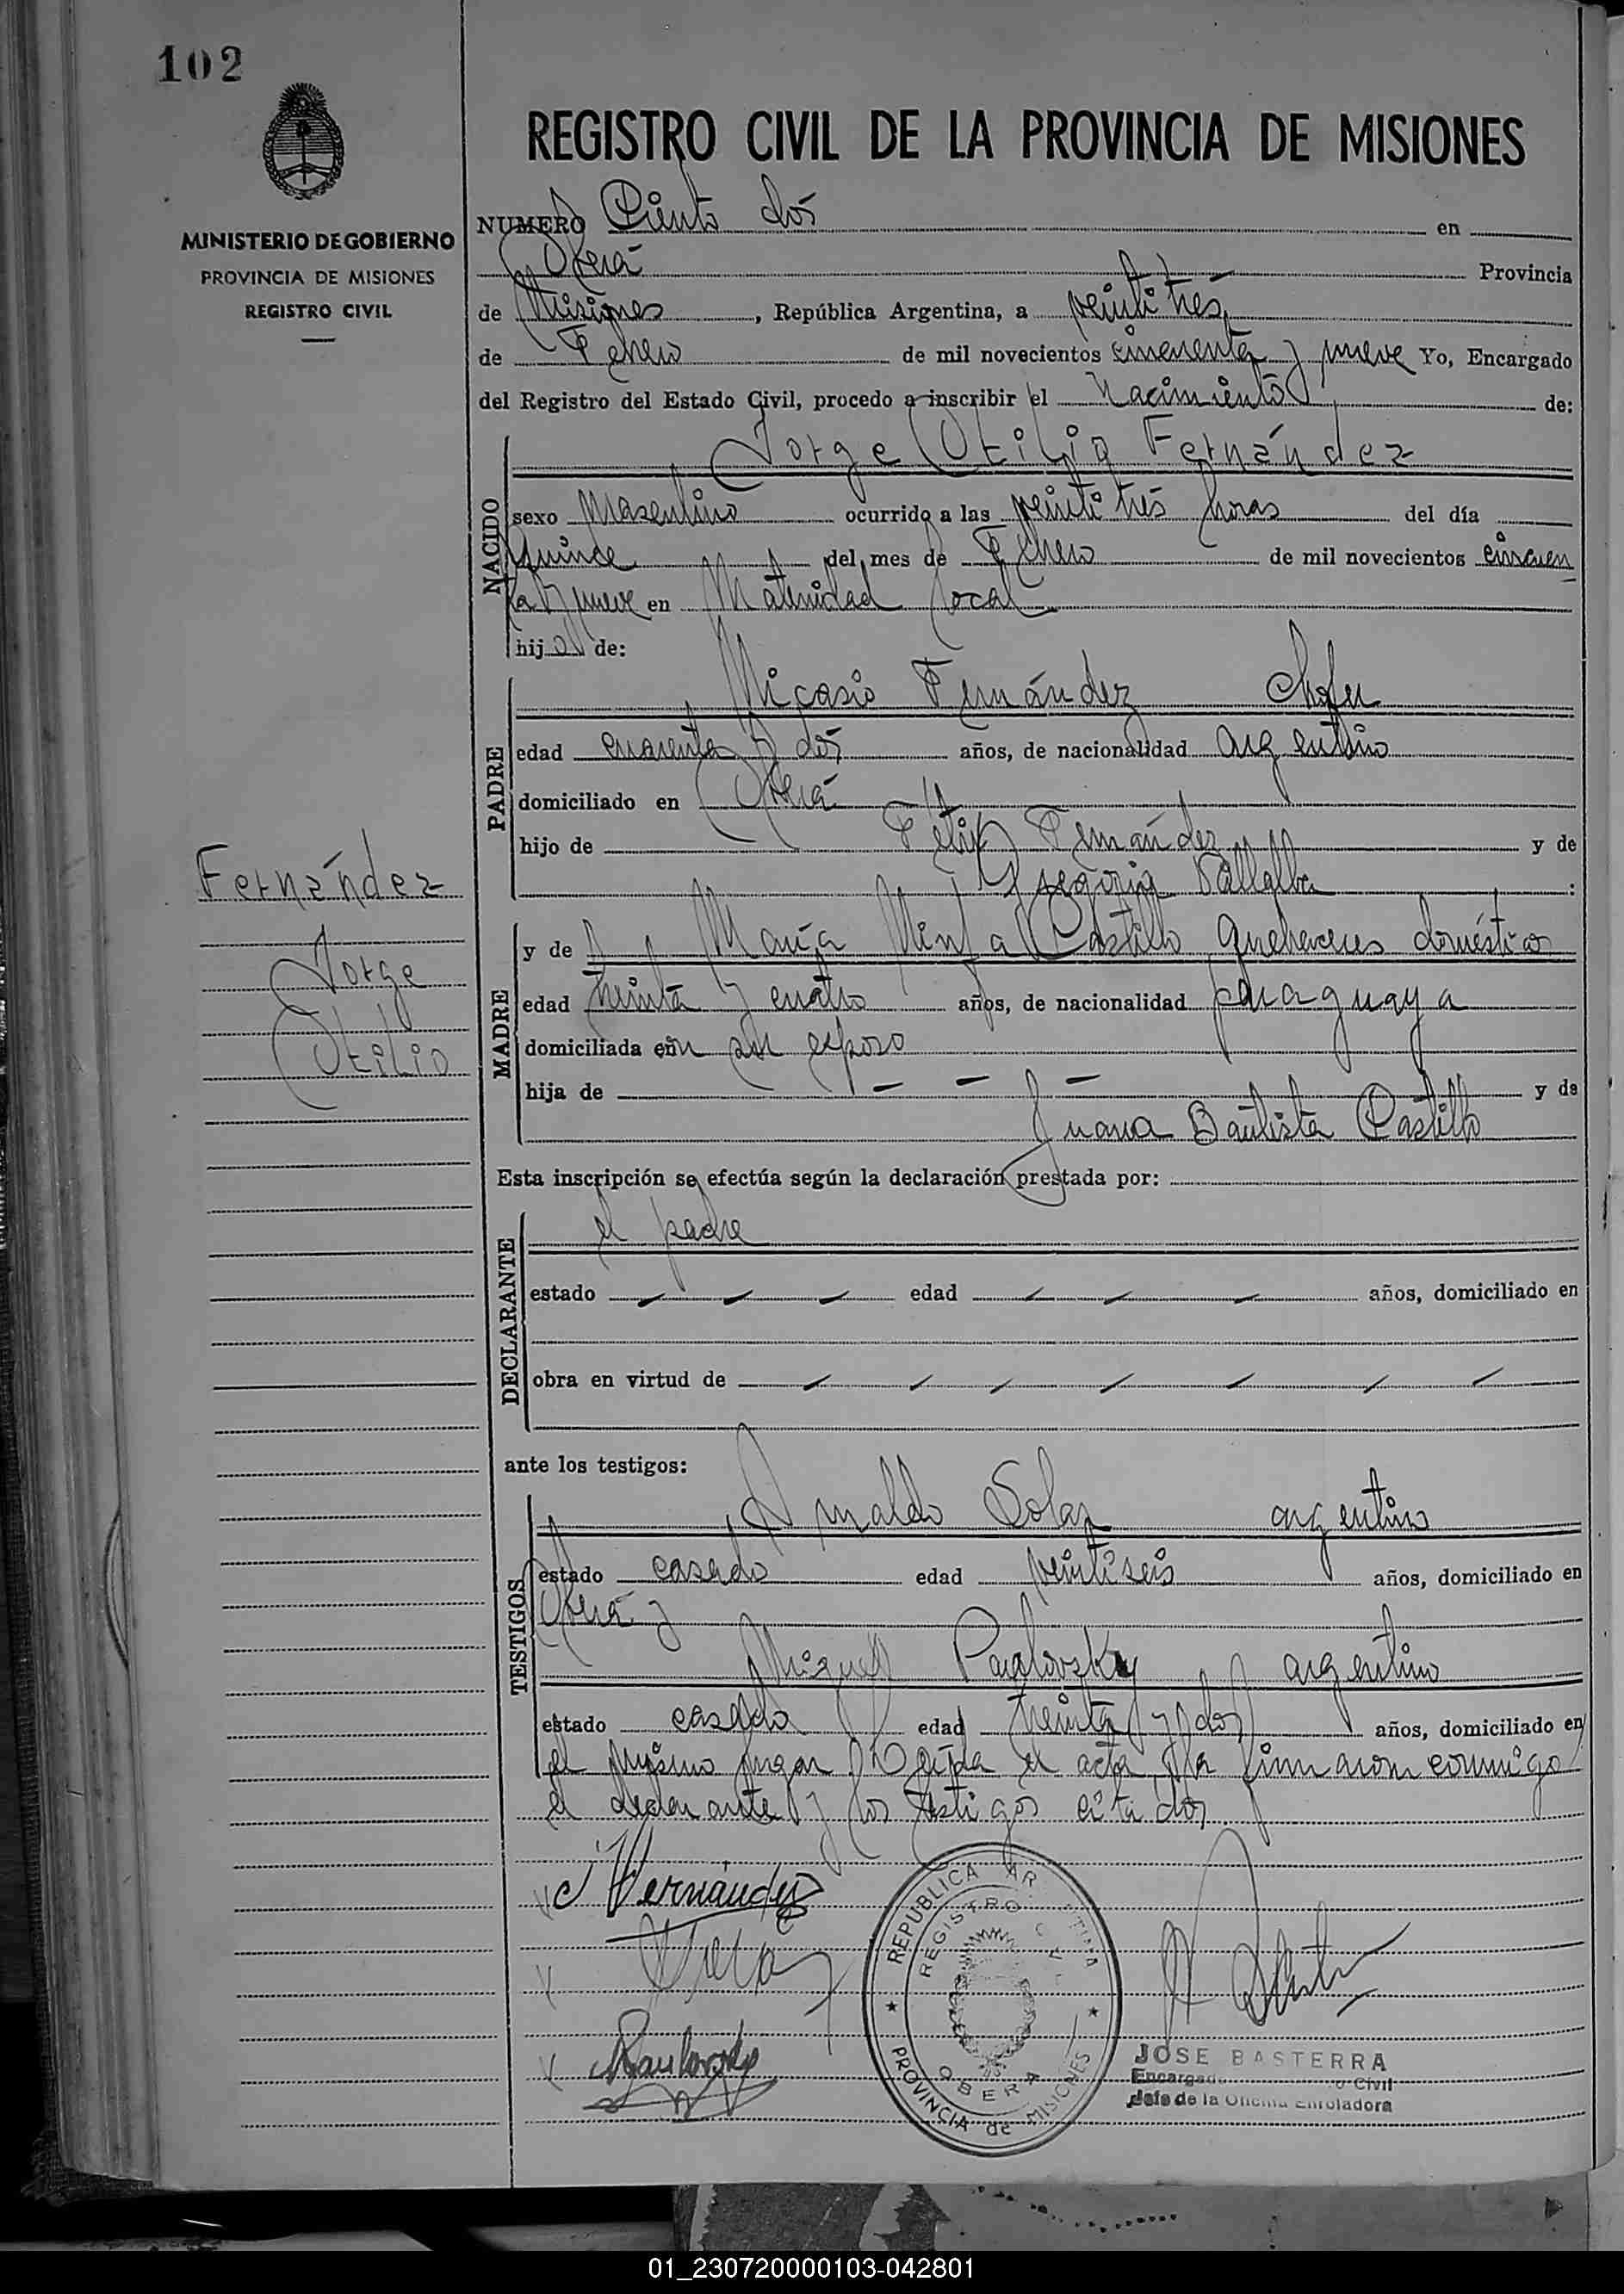 102
REGISTRO CIVIL DE LA PROVINCIA DE MISIONES
MINISTERIO DE GOBIERNO
PROVINCIA DE MISIONES
REGISTRO CIVIL
NUMERO Ciento dos en
Oberá Provincia
de Misiones, República Argentina, a veintitrés
de Febrero de mil novecientos cincuenta y nueve Yo, Encargado
del Registro del Estado Civil, procedo a inscribir el Nacimiento de:
NACIDO
Jorge Otilio Fernández
sexo Masculino ocurrido a las veintitrés horas del día
quince del mes de Febrero de mil novecientos cincuen
ta y nueve en Maternidad local
hijo de:
PADRE
Nicasio Fernández Chofer
edad cuarenta y dos años, de nacionalidad argentino
domiciliado en Oberá
hijo de Félix Fernández y de
Gregoria Villalba :
Fernández
Jorge
Otilio
MADRE
y de María Minta Castillo quehaceres domésticos
edad treinta y cuatro años, de nacionalidad paraguaya
domiciliada con su esposo
hija de — — — y de
Juana Bautista Castillo
Esta inscripción se efectúa según la declaración prestada por:
DECLARANTE
el padre
estado edad años, domiciliado en
obra en virtud de
ante los testigos:
TESTIGOS
Arnaldo Solaz argentino
estado casado edad veintiseis años, domiciliado en
Oberá y
Miguel Pawlovsky argentino
estado casado edad treinta y dos años, domiciliado en
el mismo lugar Leída el acta la firmaron conmigo
el declarante y los testigos citados
Fernández
Pawlovsky
REPUBLICA ARGENTINA
REGISTRO CIVIL
OBERA
PROVINCIA de MISIONES
JOSE BASTERRA
Encargado Civil
Jefe de la Oficina Enroladora
01_230720000103-042801